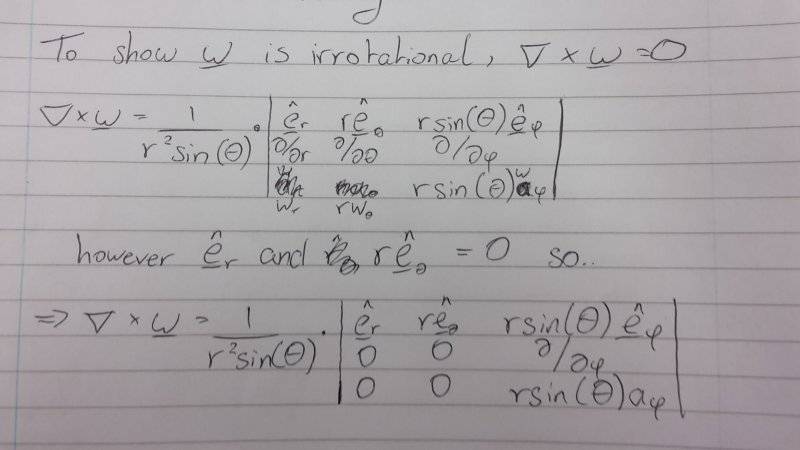 To show w is irrotational, ∇ × w = 0
∇×w = 1/(r²sin(θ)) · | ê_r rê_θ rsin(θ)ê_φ |
| ∂/∂r ∂/∂θ ∂/∂φ |
| w_r rw_θ rsin(θ)w_φ |
however ê_r and rê_θ = 0 so..
⇒ ∇ × w = 1/(r²sin(θ)) · | ê_r rê_θ rsin(θ) ê_φ |
| 0 0 ∂/∂φ |
| 0 0 rsin(θ)a_φ |